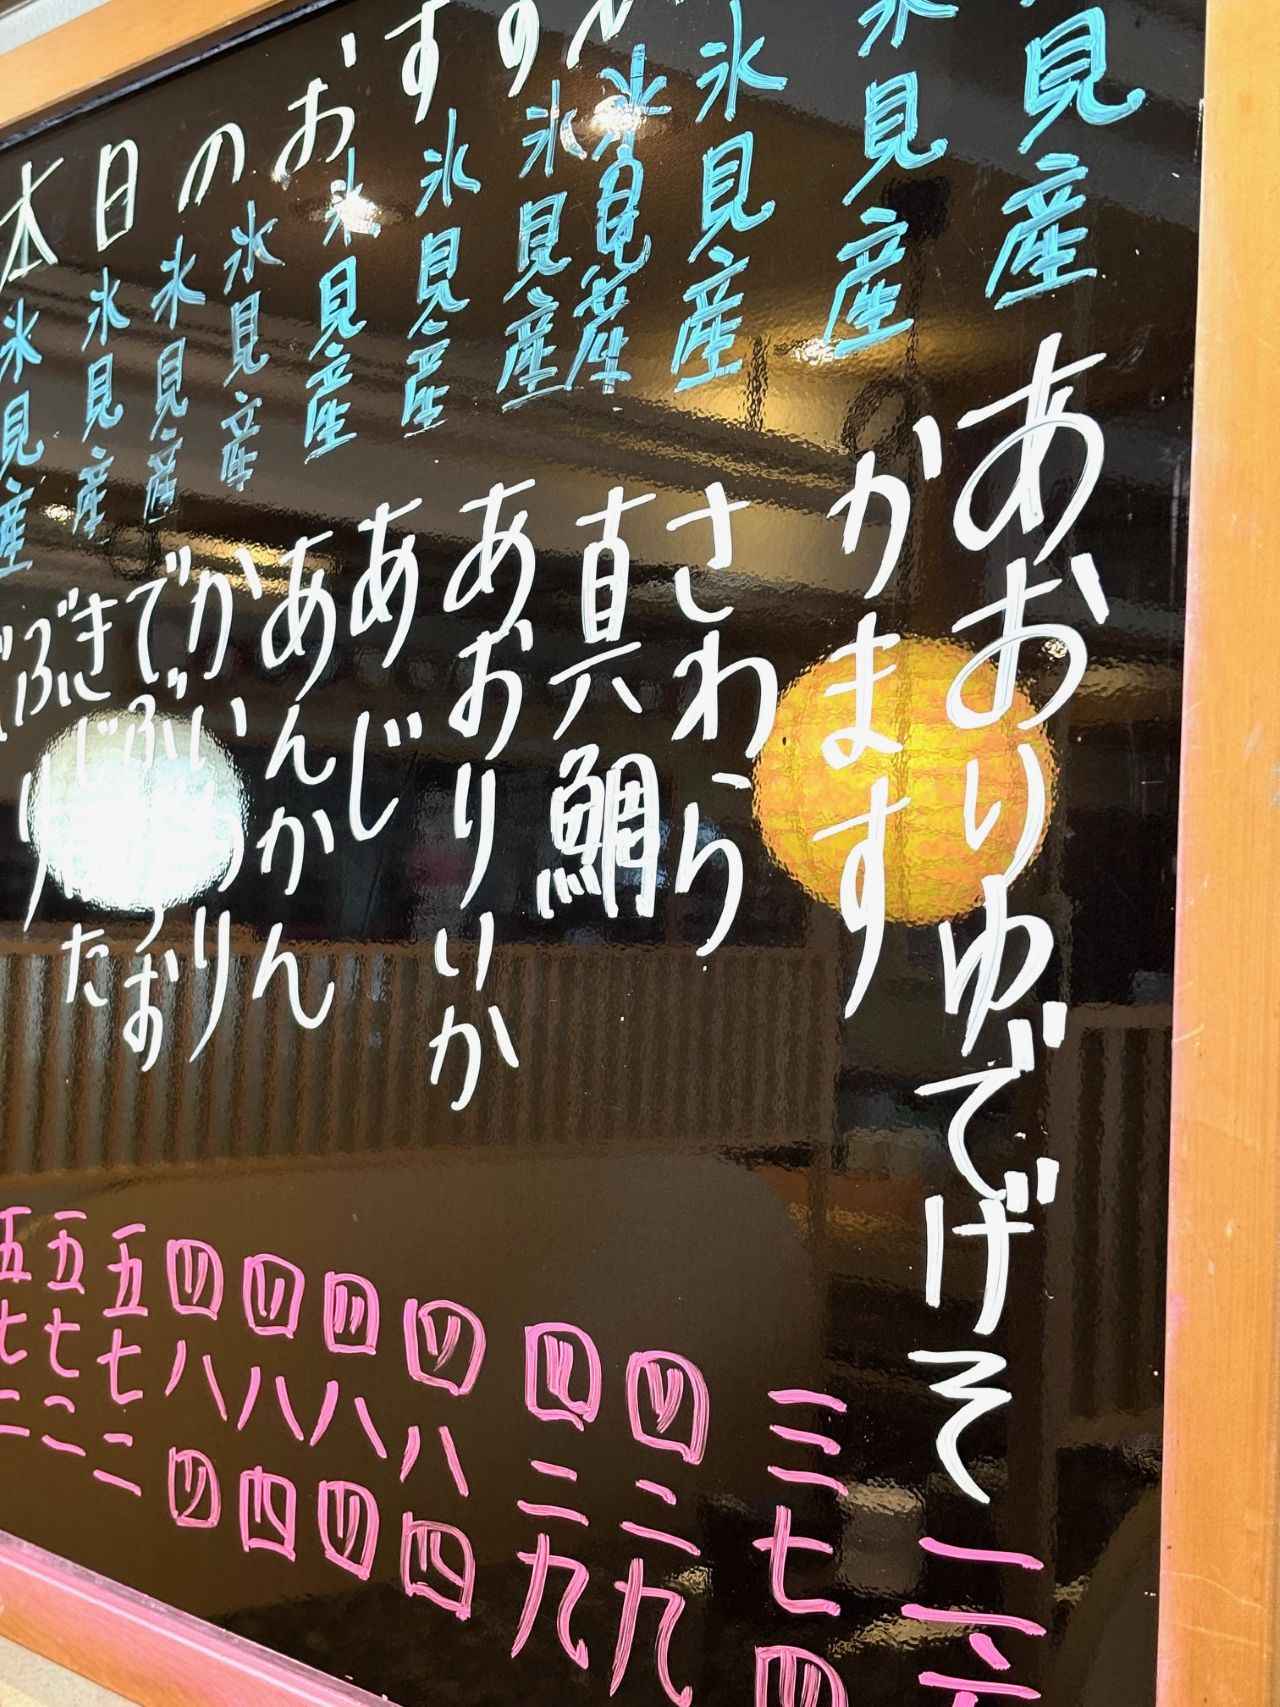 本日のおす
見産 あおりゆでげそ 二六
氷見産 かます 三七四
氷見産 さわら 四二九
氷見産 真六鯛 四二九
氷見産 あおりいか 四八四
氷見産 あじ 四八四
氷見産 あんかん 四八四
氷見産 かいわり 四八四
氷見産 五七二
氷見産 五七二
氷見産 ぶり 五七二